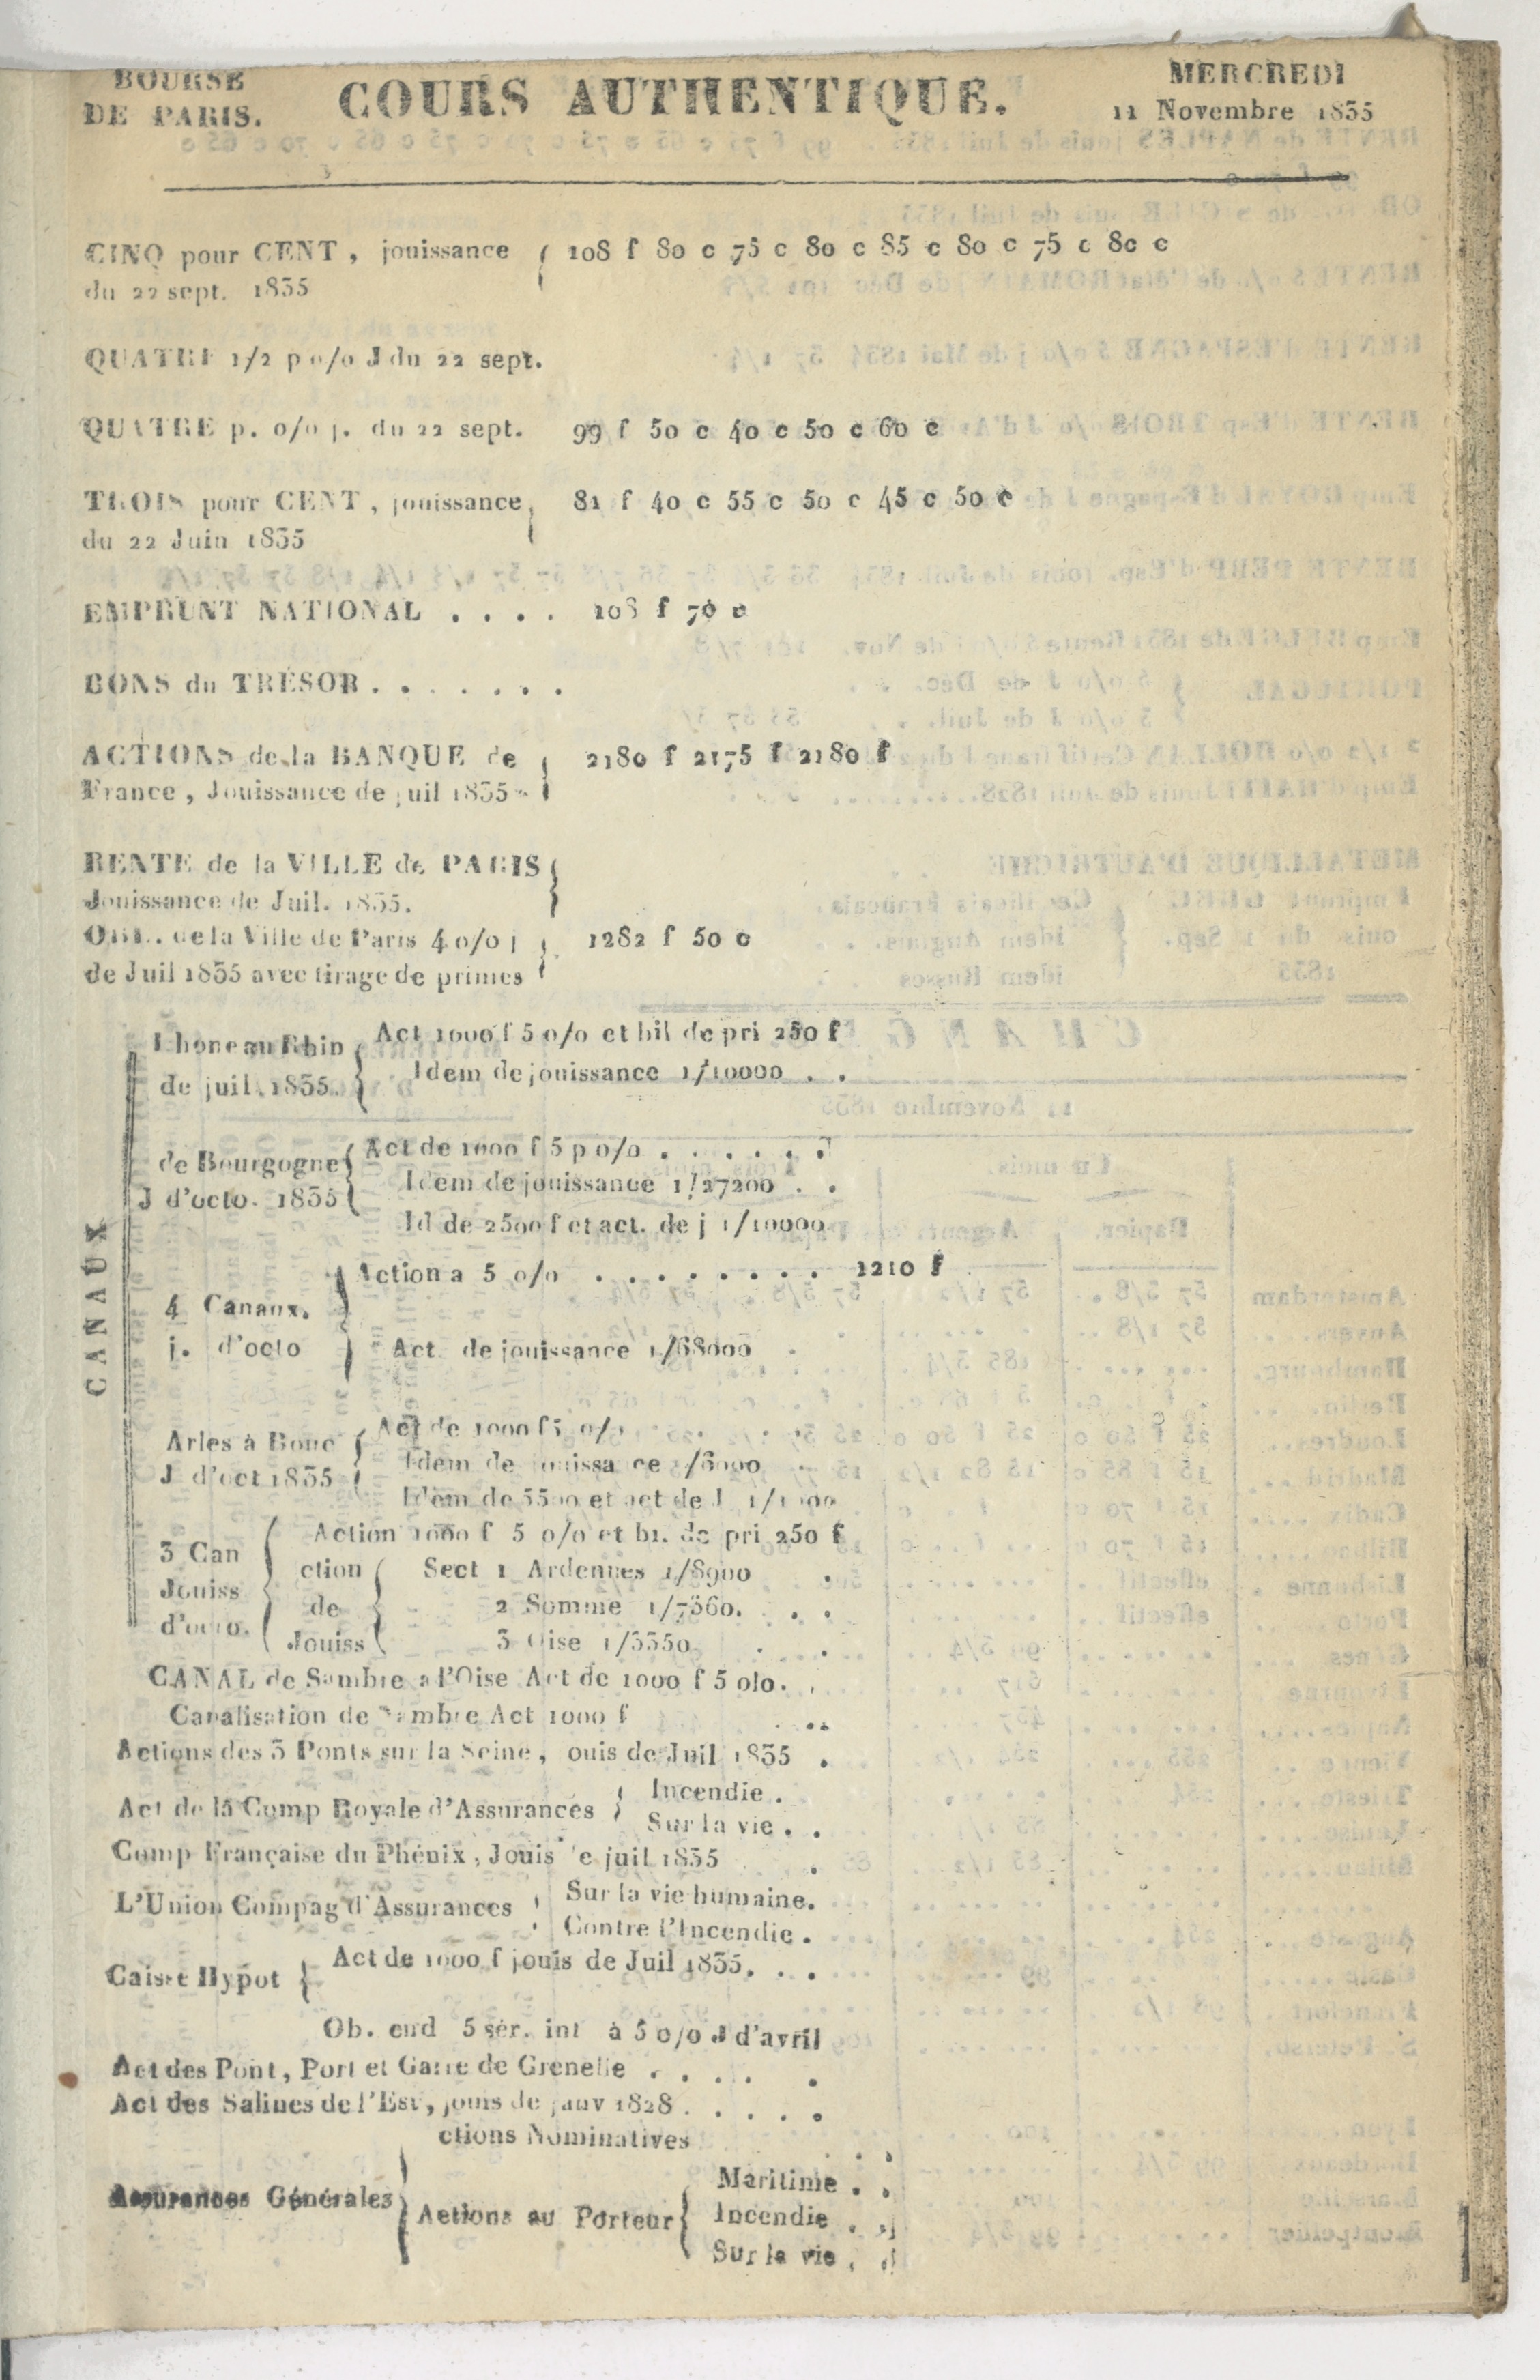 BOURSE
DE PARIS.
COURS AUTHENTIQUE.
MERCREDI
11 Novembre 1835
CINQ pour CENT, jouissance { 108 f 80 c 75 c 80 c 85 c 80 c 75 c 80 c
du 22 sept. 1835
QUATRE 1/2 p 0/0 J du 22 sept.
QUATRE p. 0/0 j. du 22 sept. 99 f 50 c 40 c 50 c 60 c
TROIS pour CENT, jouissance } 81 f 40 c 55 c 50 c 45 c 50 c
du 22 Juin 1835
EMPRUNT NATIONAL . . . . 108 f 70 c
BONS du TRÉSOR . . . . . . .
ACTIONS de la BANQUE de } 2180 f 2175 f 2180 f
France, Jouissance de juil 1835
RENTE de la VILLE de PARIS }
Jouissance de Juil. 1835.
OBL. de la Ville de Paris 4 0/0 j } 1282 f 50 c
de Juil 1835 avec tirage de primes
CANAUX
Rhone au Rhin { Act 1000 f 5 0/0 et bil de pri 250 f
de juil. 1835. Idem de jouissance 1/10000 . .
de Bourgogne { Act de 1000 f 5 p 0/0 . . . . . .
J d'octo. 1835 Idem de jouissance 1/27200 . .
Id de 2500 f et act. de j 1/10000
4 Canaux. } Action a 5 0/0 . . . . . . . . 1210 f
j. d'octo Act. de jouissance 1/68000 .
Arles à Bouc { Act de 1000 f 5 0/0
J d'oct 1835 Idem de jouissance 1/6000
Idem de 5500 et act de J 1/1000
3 Can { Action 1000 f 5 0/0 et bi. de pri 250 f
Jouiss ction { Sect 1 Ardennes 1/8900 .
d'octo. de 2 Somme 1/7360. . .
Jouiss 3 Oise 1/3350 . .
CANAL de Sambre a l'Oise Act de 1000 f 5 0/0. .
Canalisation de Sambre Act 1000 f ..
Actions des 3 Ponts sur la Seine, ouis de Juil 1835 .
Act de la Comp Royale d'Assurances { Incendie .
Sur la vie . .
Comp Française du Phénix, Jouis e juil 1835 .
L'Union Compag d'Assurances { Sur la vie humaine.
Contre l'Incendie .
Caisse Hypot { Act de 1000 f jouis de Juil 1835. . .
Ob. end 5 sér. int à 5 0/0 J d'avril
Act des Pont, Port et Garre de Grenelle . . . . .
Act des Salines de l'Est, jouis de janv 1828 . . . . .
ctions Nominatives . .
Assurances Générales { Actions au Porteur { Maritime . .
Incendie . .
Sur la vie . .